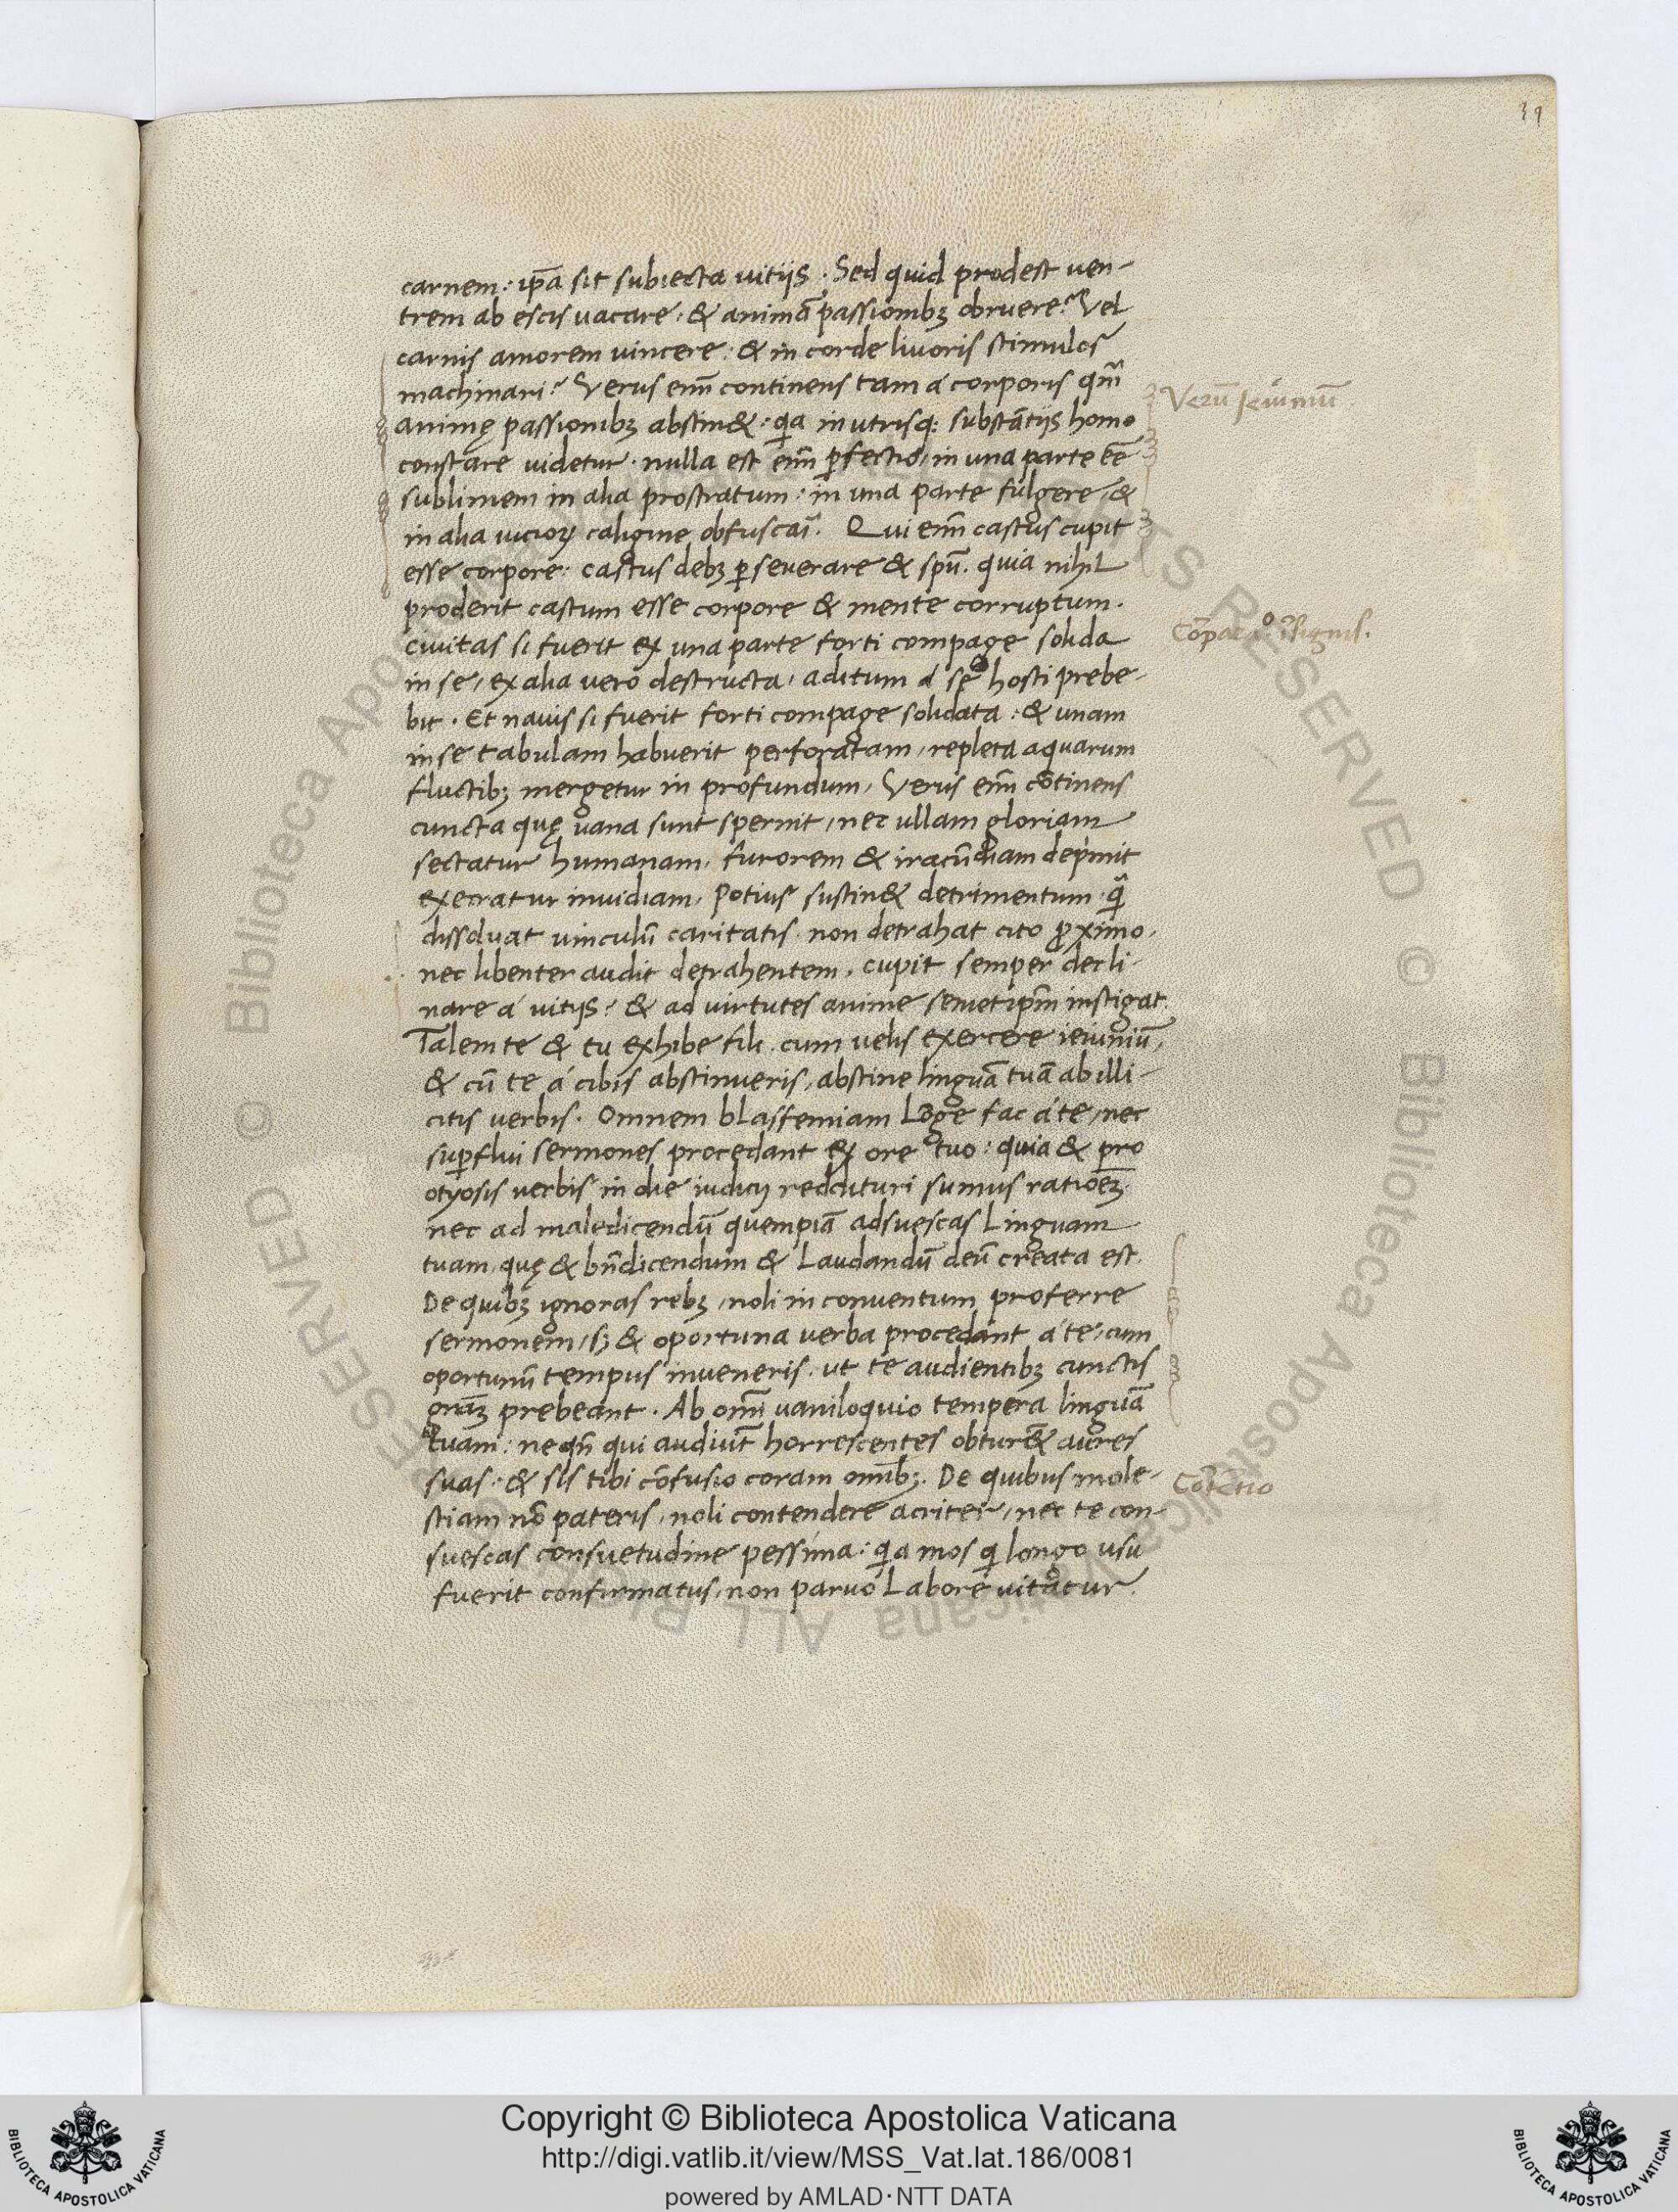 39
carnem: ip̄a sit subiecta vitijs. Sed quid prodest ven-
trem ab escis vacare, & animā passionibꝫ obruere? Vel
carnis amorem vincere: & in corde livoris stimulos
machinari? Verus enī continens tam á corporis qm̄
animę passionibꝫ abstin&: qa in utrisq: substātijs homo
constare videtur. nulla est enī ꝑfectio, in una parte eē
sublimem in alia prostratum: in una parte fulgere, &
in alia vicioꝝ caligine obfuscari. Qui enī castus cupit
esse corpore: castus debꝫ ꝑseverare & spū. quia nihil
proderit castum esse corpore & mente corruptum.
civitas si fuerit ex una parte forti compage solida
in se, ex alia vero destructa, aditum á se hosti prebe-
bit. Et navis si fuerit forti compage solidata: & unam
in se tabulam habuerit perforatam, repleta aquarum
fluctibꝫ mergetur in profundum, Verus enī cōtinens
cuncta quę vana sunt spernit, nec ullam gloriam
sectatur humanam, furorem & iracūdiam deprimit
execratur invidiam, Potius sustin& detrimentum, quā
dissolvat vinculū caritatis. non detrahat cito ꝓximo,
nec libenter audit detrahentem, cupit semper decli-
nare á vitijs: & ad virtutes anime semetipm̄ instigat.
Talem te & tu exhibe fili. cum velis exercere ieiuniū,
& cū te á cibis abstinueris, abstine linguā tuā ab illi-
citis verbis. Omnem blasfemiam lōge fac á te, nec
suꝑflui sermones procedant ex ore tuo: quia & pro
otyosis verbis in die iudicij reddituri sumus ratioēꝫ
nec ad maledicendū quempiā adsuescas linguam
tuam, quę & bn̄dicendum & Laudandū deū creata est.
De quibꝫ ignoras rebꝫ, noli in conventum proferre
sermonem, sꝫ & oportuna verba procedant á te, cum
oportunū tempus inveneris. ut te audientibꝫ cunctis
gratiāꝫ prebeant. Ab omī vaniloquio tempera linguā
tuam: ne qn̄ qui audiūt horrescentes obturēt aures
suas: & sis tibi cōfusio coram omībꝫ. De quibus mole-
stiam nō pateris, noli contendere acriter, nec te con-
suescas consuetudine pessima: qa mos qi longo usu
fuerit confirmatus, non parvo Labore vitatur.
Verū Jeiuniū
Cōpac̄o īsignis.
Cōtētio
Copyright © Biblioteca Apostolica Vaticana
http://digi.vatlib.it/view/MSS_Vat.lat.186/0081
powered by AMLAD·NTT DATA
BIBLIOTECA APOSTOLICA VATICANA
BIBLIOTECA APOSTOLICA VATICANA